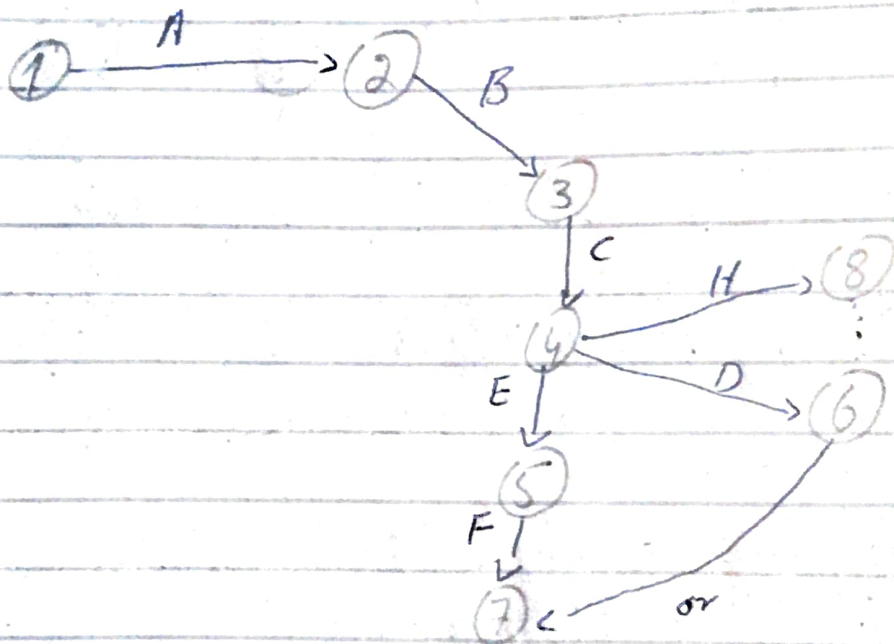 A
1
2
B
3
C
H
8
4
D
E
6
5
F
7
or